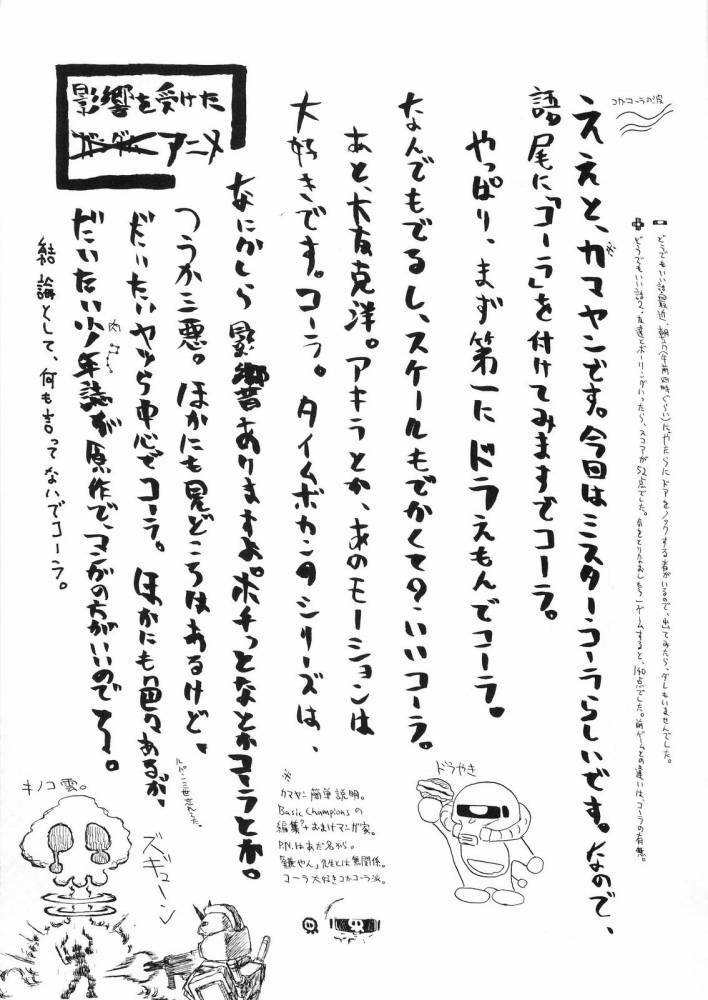 影響を受けた
ガンダムアニメ
コカ・コーラの波
どうでもいい話 最近、朝方(午前四時ぐらい)にやたらにドアをノックする者がいるので、出てみたら、ダレもいませんでした。
どうでもいい話2、友達とボーリングいったら、スコアが52点でした。気をとりなおしもう1ゲームすると、140点でした。前ゲームとの違いは、コーラの有無。
ええと、カマヤンです。今回はミスターコーラらしいです。なので、
語尾に「コーラ」を付けてみますでコーラ。
やっぱり、まず第一にドラえもんでコーラ。
なんでもでるし、スケールもでかくての・いいコーラ。
あと、大友克洋。アキラとか、あのモーションは
大好きです。コーラ。タイムボカンのシリーズは、
なにかしら影響ありますよ。ポチっとなとかコーラとか。
つうか三悪。ほかにも見どころはあるけど、
だいたいヤツら中心でコーラ。ほかにも色々あるが、
ルパン三世忘れてた。
だいたい少年誌が原作で、マンガの方がいいのでコーラ。
結論として、何も言ってないでコーラ。
※
カマヤン簡単説明。
Basic Championsの
編集?+おまけマンガ家。
P.N.はあだ名から。
「鎌やん」先生とは無関係。
コーラ大好きコカコーラ派。
ドラやき
キノコ雲。
ズギューン